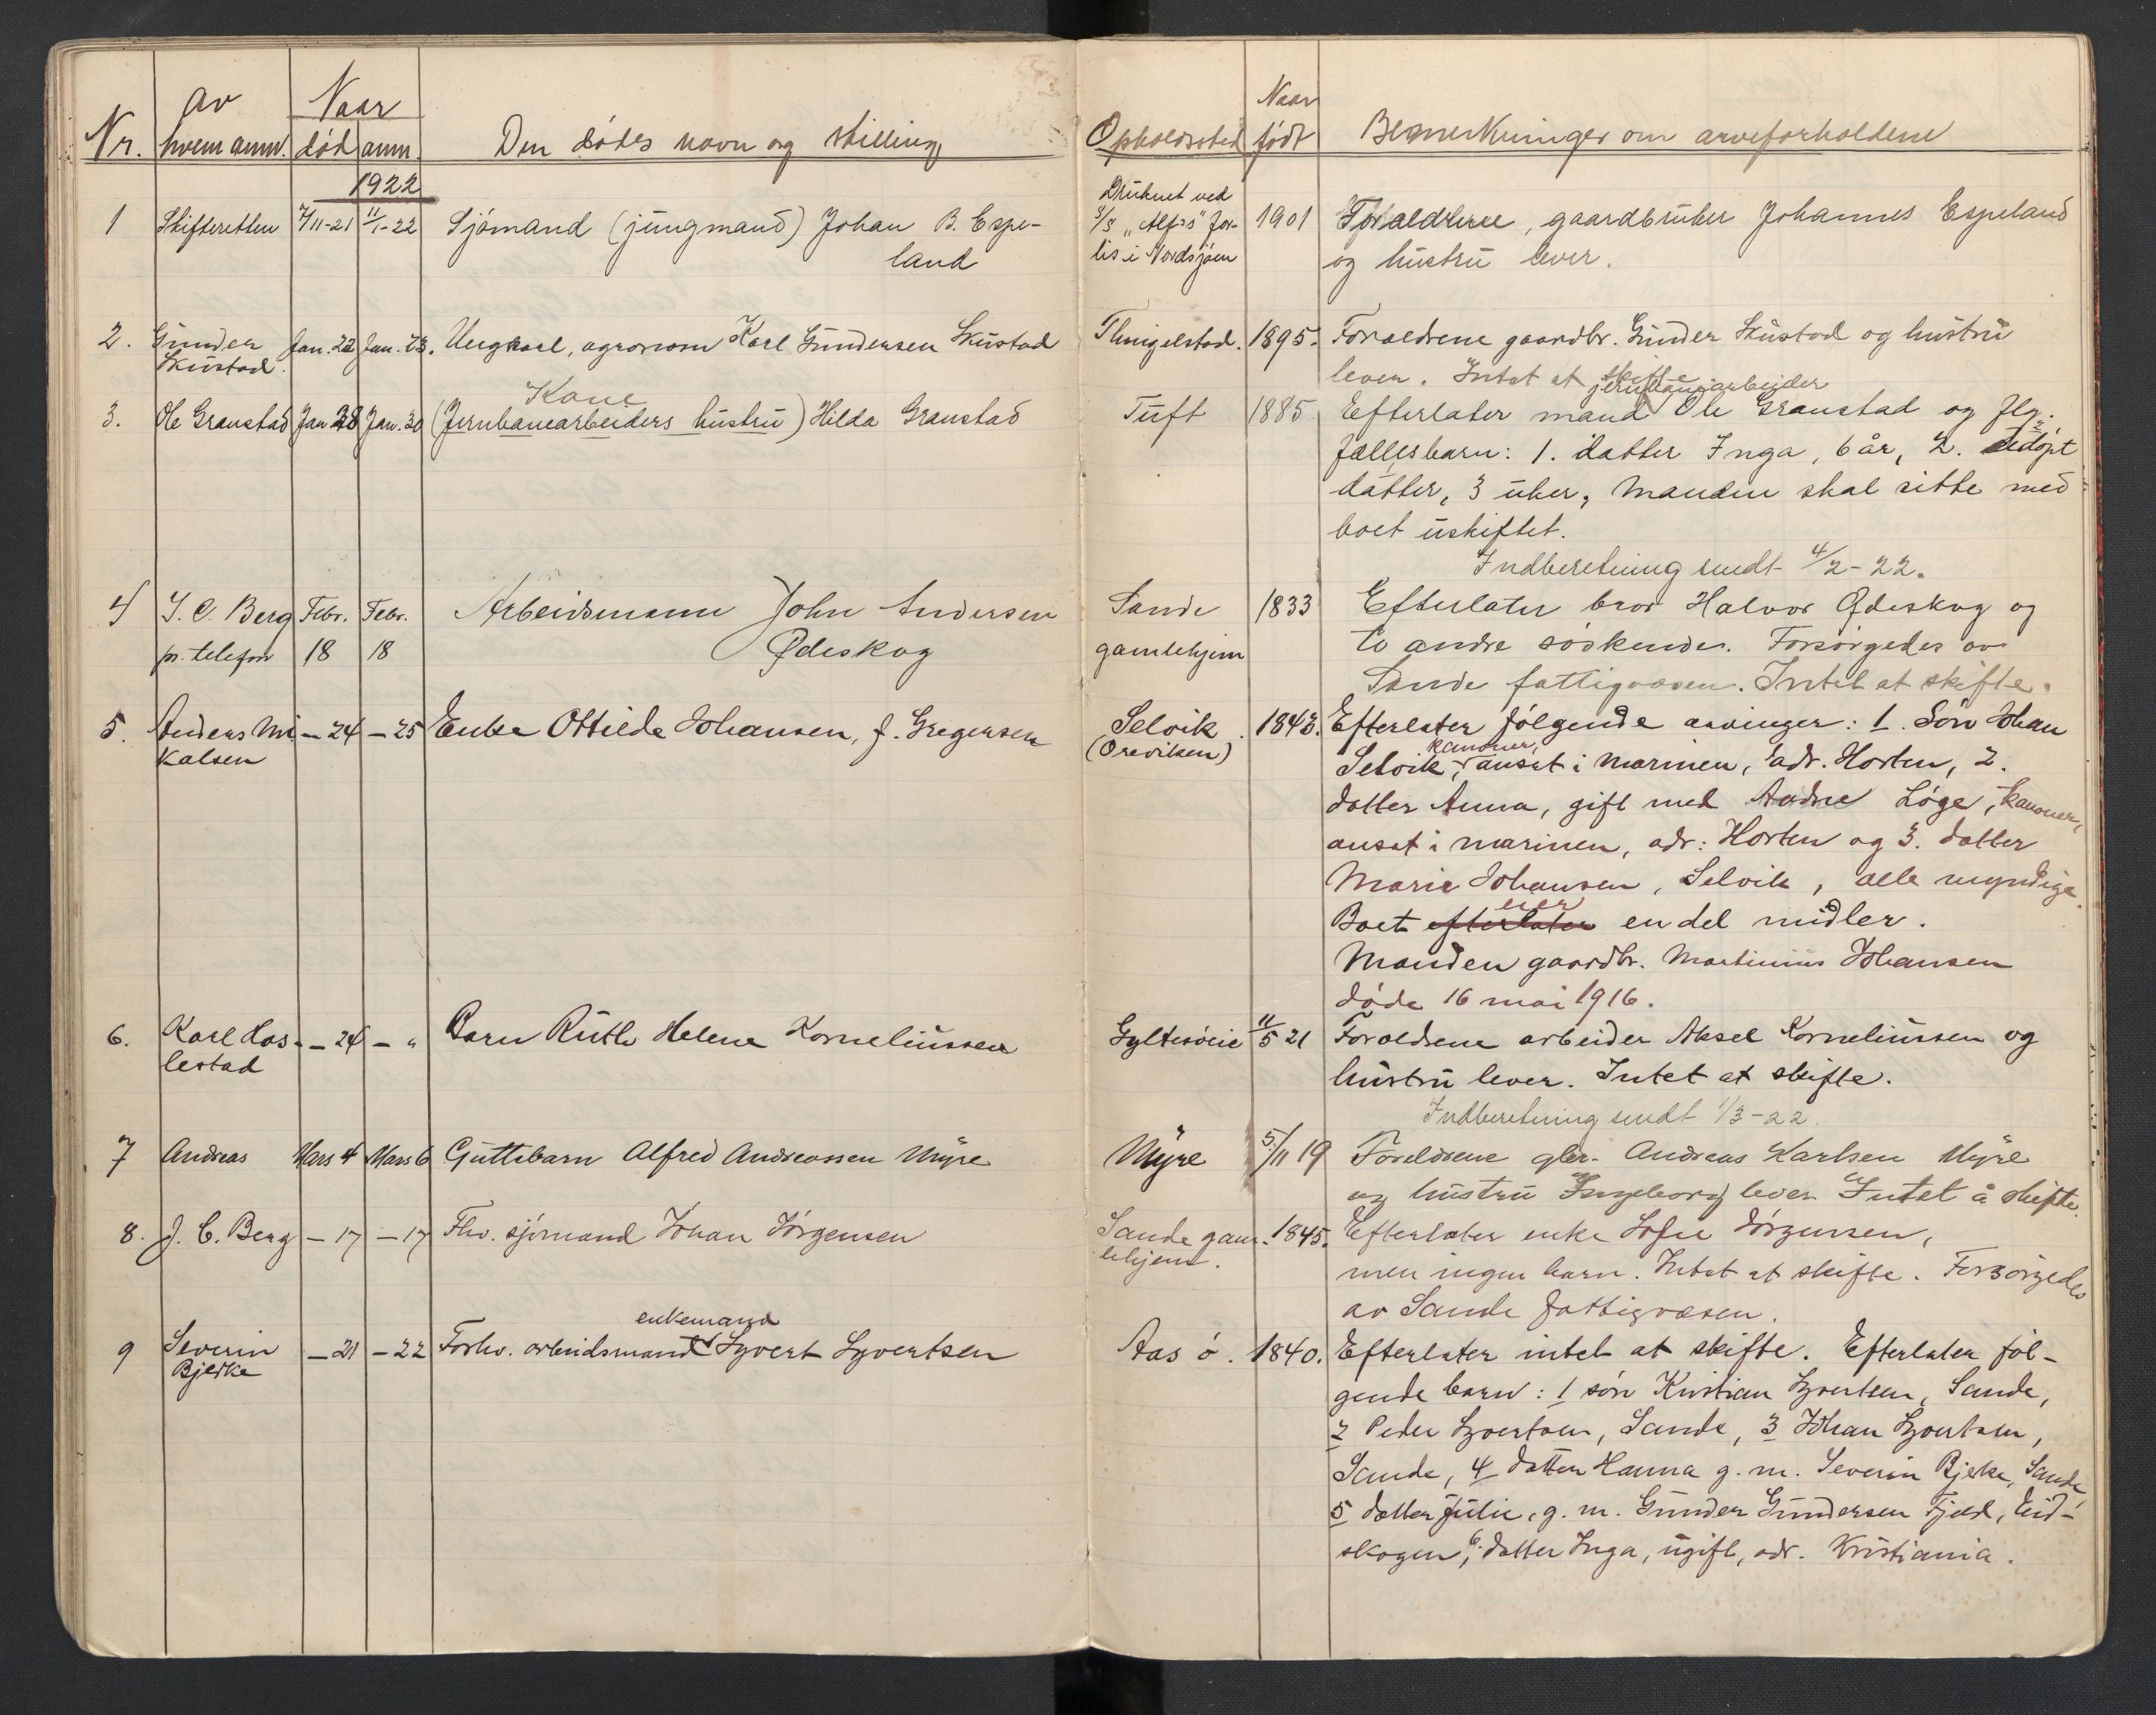 Nr. av hvem anm. Naar død anm. Den dødes navn og stilling Opholdssted Naar født Bemerkninger om arveforholdene
1922
1 Skifteretten 7/11-21 11/1-22 Sjómand (jungmand) Johan B. Espe-
land
Druknet ved
S/S "Alf's" for-
lis i Nordsjøen
1901 Forældrene, gaardbruker Johannes Espeland
og hustru lever.
2. Gunder Skustad. Jan. 22 Jan. 23. Ungkarl, agronom Karl Gundersen Skustad Thingelstad. 1895. Forældrene gaardbr. Gunder Skustad og hustru
lever. Intet at skifte
3. Ole Granstad Jan 28 Jan. 30 (Jernbanearbeiders hustru) Kone Hilda Granstad Tuft 1885 Efterlater mand jernbanearbeider Ole Granstad og flg.
fællesbarn: 1. datter Inga, 6 år, 2. udøpt
datter, 3 uker, Manden skal sitte med
boet uskiftet.
Indberetning sendt 4/2-22.
4 J. C. Berg pr. telefon Febr. 18 Febr. 18 Arbeidsmann John Andersen
Ødeskog
Sande
gamlehjem
1833 Efterlater bror Halvor Ødeskog og
to andre søskender. Forsørgedes av
Sande fattigvæsen. Intet at skifte.
5. Anders Mi-
kalsen
- 24 - 25 Enke Ottilde Johansen, f. Gregersen Selvik.
(Oreviken)
1843. Efterlater følgende arvinger: 1. Søn Johan
Selvik, kanoner, ansat i marinen, adr. Horten, 2.
datter Anna, gift med Andre Løge, kanoner,
ansat i marinen, adr: Horten og 3. datter
Marie Johansen, Selvik, alle myndige.
Boet efterlater eier en del midler.
Manden gaardbr. Martinius Johansen
døde 16 mai 1916.
6. Karl Has-
lestad
- 24 - " Barn Ruth Helene Korneliussen Gyltesøeie 11/5 21 Forældrene arbeider Aksel Korneliussen og
hustru lever. Intet at skifte.
Indberetning sendt 1/3-22.
7 Andreas Mars 4 Mars 6 Guttebarn Alfred Andreassen Myre Myre 5/11 19 Foreldrene gbr. Andreas Karlsen Myre
og hustru Ingeborg lever. Intet å skifte.
8. J. C. Berg - 17 - 17 Fhv. sjømand Johan Jørgensen Sande gam-
lehjem.
1845. Efterlater enke Sofie Jørgensen,
men ingen barn. Intet at skifte. Forsørgedes
av Sande fattigvæsen.
9 Severin
Bjerke
- 21 - 22 Forhv. arbeidsmand enkemand Syvert Syvertsen Aas ø. 1840. Efterlater intet at skifte. Efterlater føl-
gende barn: 1 søn Kristian Syvertsen, Sande,
2 Peder Syvertsen, Sande, 3 Johan Syvertsen,
Sande, 4 datter Hanna g. m. Severin Bjerke, Sande,
5 datter Julie, g. m. Gunder Gundersen Fjeld, Eid-
skogen, 6. datter Inga, ugift, adr. Kristiania.